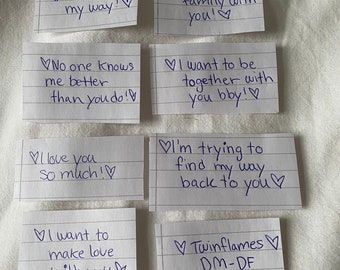 my way!♡
family with
you!♡
♡No one knows
me better
than you do!♡
♡I want to be
together with
you bby!♡
♡I love you
so much!♡
♡I'm trying to
find my way
back to you♡
♡I want to
make love
♡ Twinflames
DM-DF